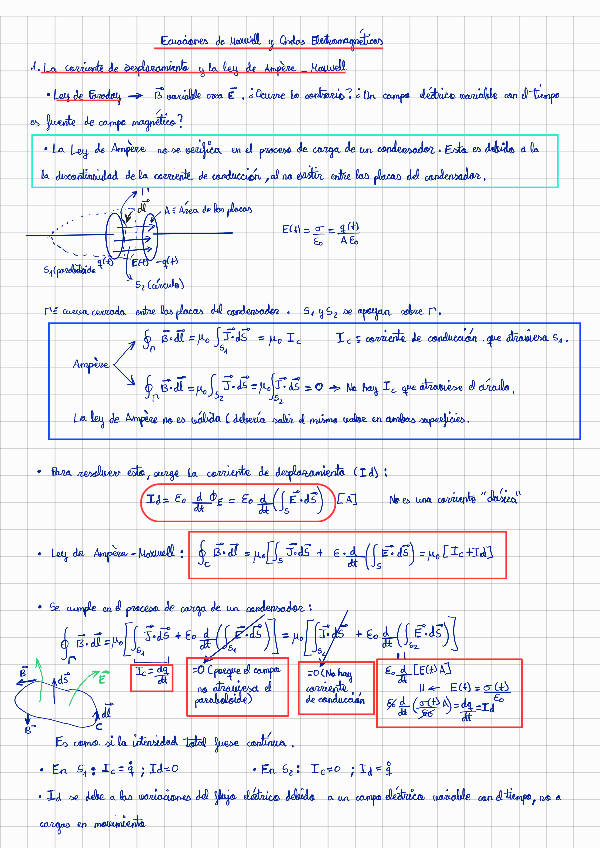 Ecuaciones de Maxwell y Ondas Electromagnéticas
1. La corriente de desplazamiento y la ley de Ampère-Maxwell
• Ley de Faraday → B⃗ variable crea E⃗. ¿Ocurre lo contrario? ¿Un campo eléctrico variable con el tiempo
es fuente de campo magnético?
• La Ley de Ampère no se verifica en el proceso de carga de un condensador. Esto es debido a la
la discontinuidad de la corriente de conducción, al no existir entre las placas del condensador.
Γ
dl⃗
A ≡ Área de las placas
E(t) = σ/ε₀ = q(t)/Aε₀
S₁ (paraboloide q(t) E⃗(t) -q(t)
S₂ (círculo)
Γ ≡ curva cerrada entre las placas del condensador. S₁ y S₂ se apoyan sobre Γ.
∮_Γ B⃗·dl⃗ = μ₀ ∫_S₁ J⃗·dS⃗ = μ₀ I_c I_c ≡ corriente de conducción que atraviesa S₁.
Ampère
∮_Γ B⃗·dl⃗ = μ₀ ∫_S₂ J⃗·dS⃗ = μ₀ ∫_S₂ J⃗·dS⃗ = 0 → No hay I_c que atraviese el círculo.
La ley de Ampère no es válida (debería salir el mismo valor en ambas superficies.
• Para resolver esto, surge la corriente de desplazamiento (Id):
Id = ε₀ d/dt Φ_E = ε₀ d/dt (∫_S E⃗·dS⃗) [A] No es una corriente "clásica"
• Ley de Ampère-Maxwell: ∮_C B⃗·dl⃗ = μ₀[∫_S J⃗·dS⃗ + ε· d/dt (∫_S E⃗·dS⃗) = μ₀ [I_c+Id]
• Se cumple en el proceso de carga de un condensador:
∮_Γ B⃗·dl⃗ = μ₀[∫_S₁ J⃗·dS⃗ + ε₀ d/dt (∫_S₁ E⃗·dS⃗)] = μ₀ [∫_S₂ J⃗·dS⃗ + ε₀ d/dt (∫_S₂ E⃗·dS⃗)]
I_c = dq/dt
=0 (porque el campo
no atraviesa el
paraboloide)
=0 (No hay
corriente
de conducción
ε₀ d/dt [E(t) A]
|| ← E(t) = σ(t)/ε₀
ε₀ d/dt (σ(t)/ε₀ A) = dq/dt = Id
B⃗ dS⃗ E⃗
dl⃗
B⃗ C
Es como si la intensidad total fuese continua.
• En S₁: I_c = q̇ ; Id=0 • En S₂: I_c=0 ; Id = q̇
• Id se debe a las variaciones del flujo eléctrico debido a un campo eléctrico variable con el tiempo, no a
cargas en movimiento